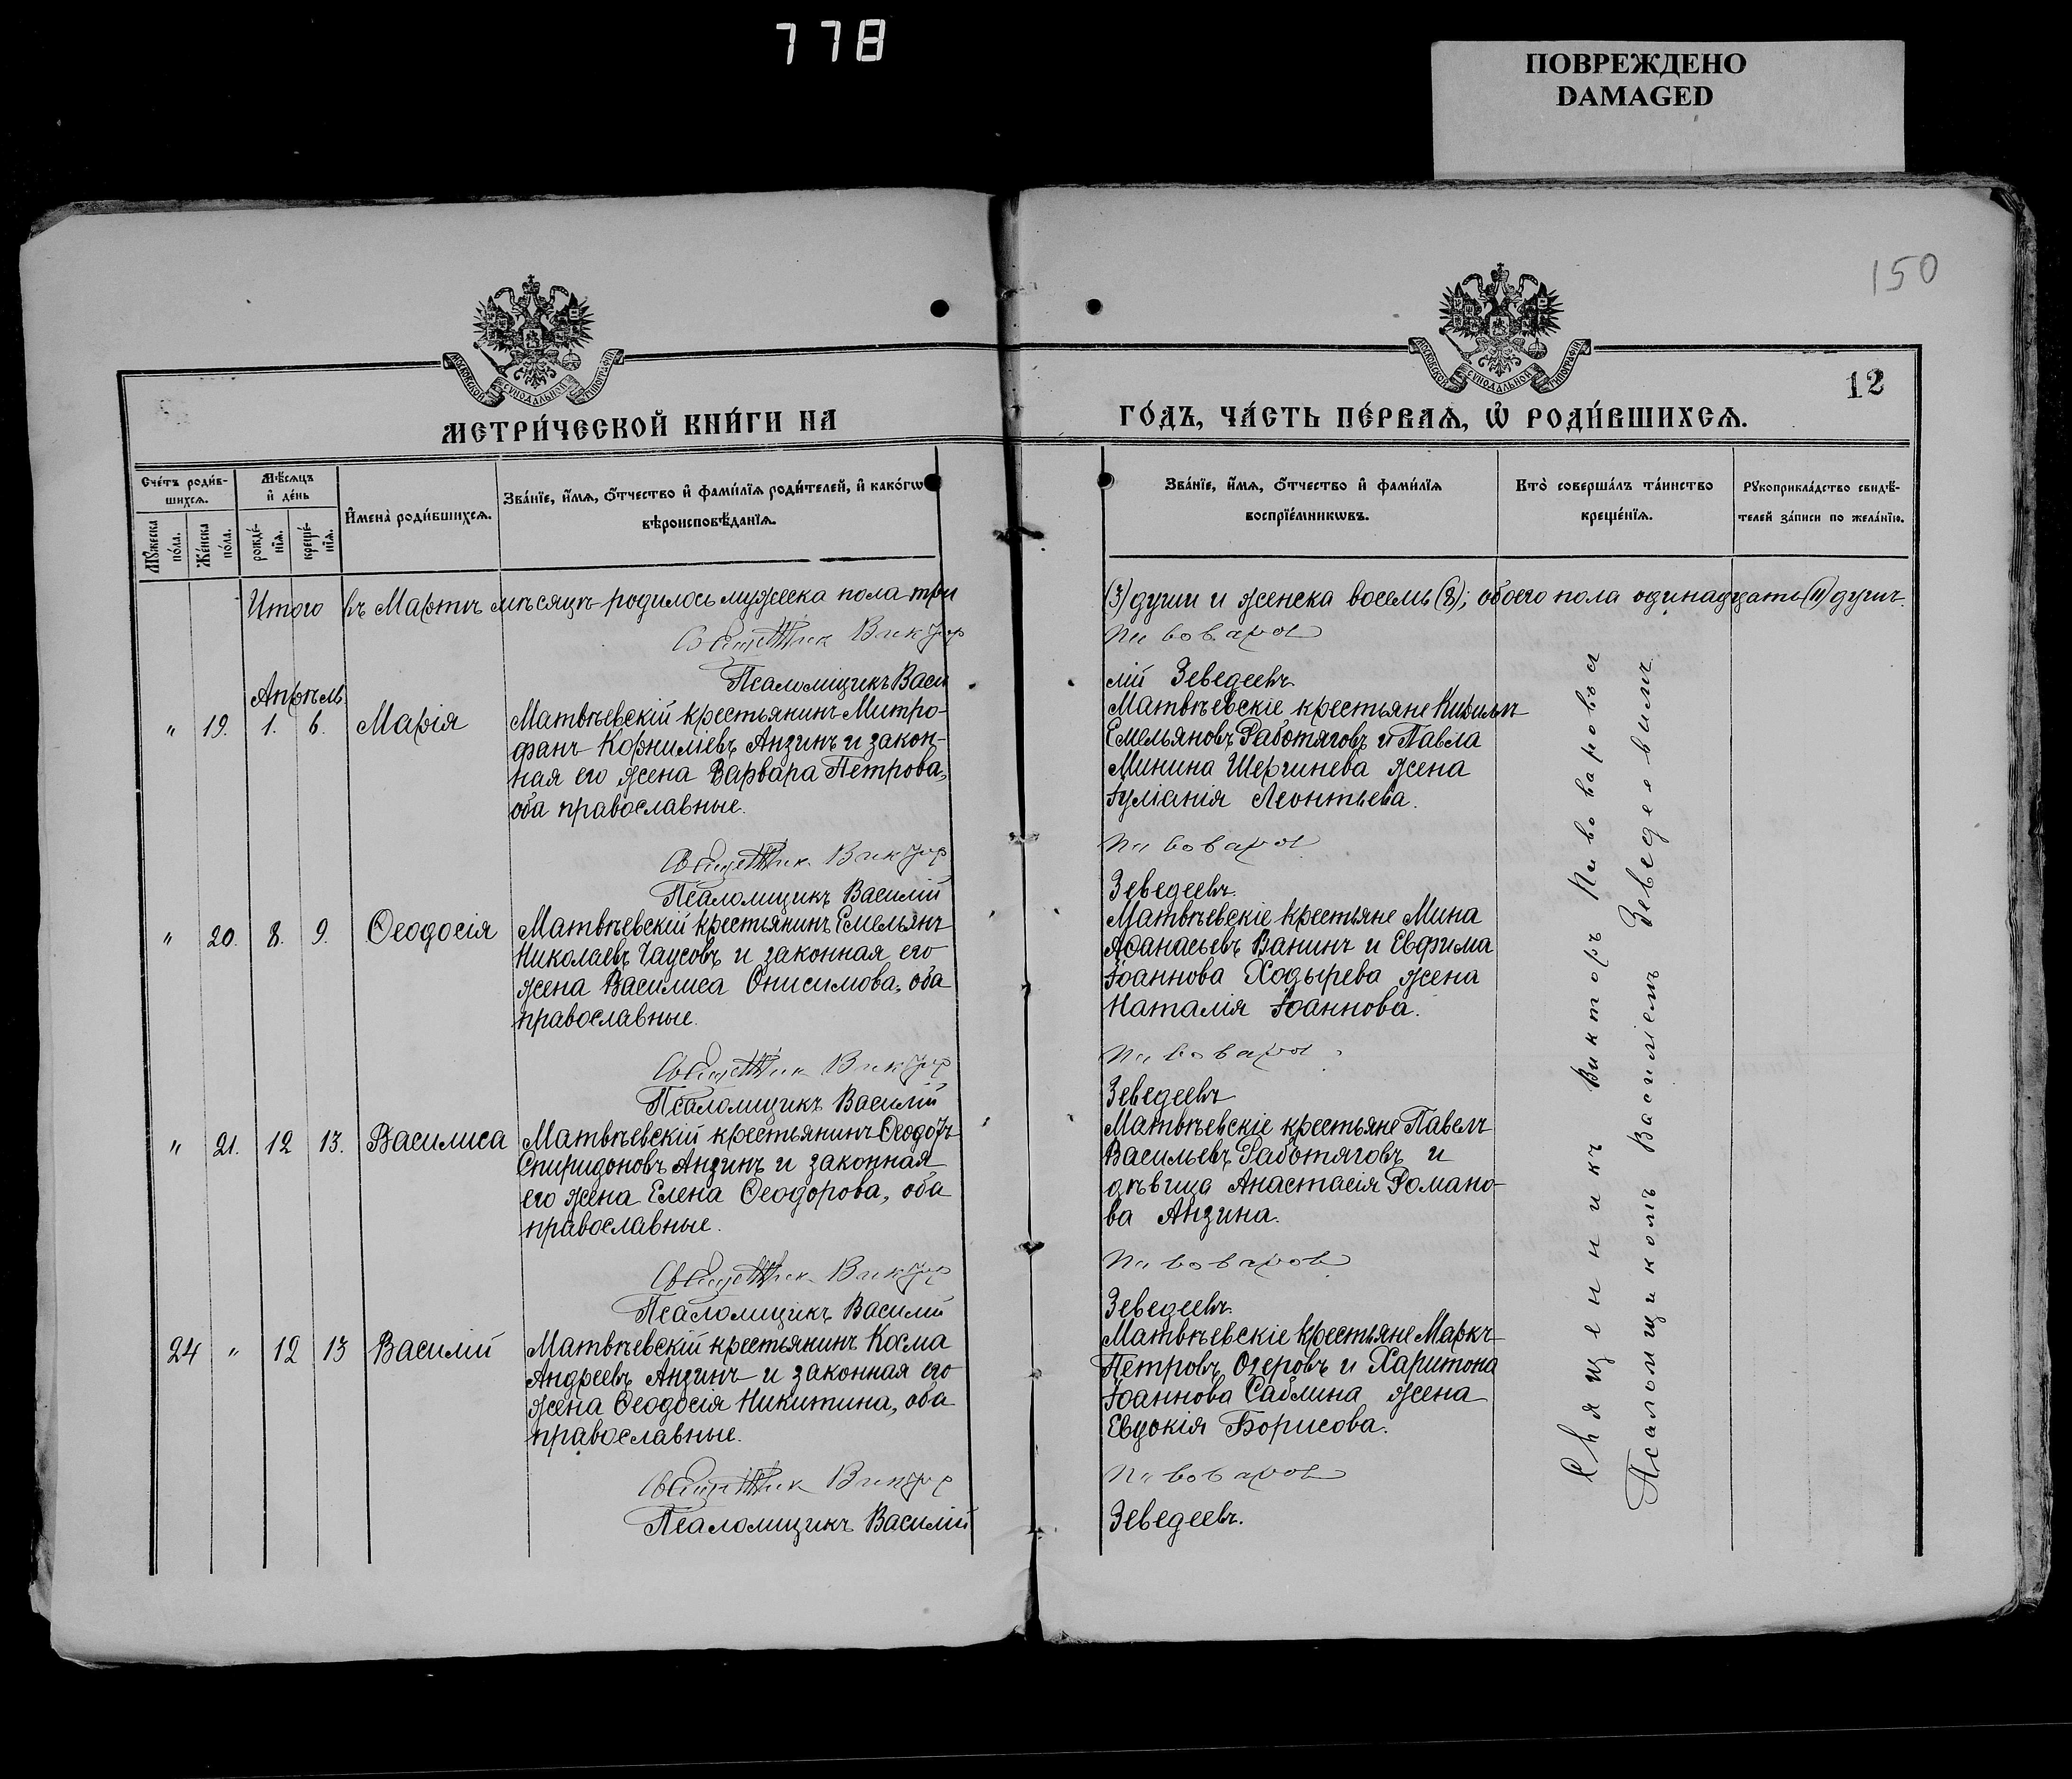 778
ПОВРЕЖДЕНО
DAMAGED
150
МОСКОВСКОЙ СУНОДАЛЬНОЙ ТИПОГРАФІИ
МОСКОВСКОЙ СУНОДАЛЬНОЙ ТИПОГРАФІИ
12
МЕТРИ́ЧЕСКОЙ КНИ́ГИ НА ГО́ДЪ, ЧА́СТЬ ПЕ́РВАѦ, Ѡ҆ РОДИ́ВШИХСѦ.
Сче́тъ роди́в-
шихсѧ.
Мѣ́сѧцъ
и҆ де́нь
Мꙋ́жеска
по́ла.
Же́нска
по́ла.
рожде́-
нїѧ.
креще́-
нїѧ.
И҆мена̀ роди́вшихсѧ.
Зва́нїе, и҆́мѧ, ѻ҆́тчество и҆ фами́лїѧ роди́телей, и҆ како́гѡ
вѣроисповѣ́данїѧ.
Зва́нїе, и҆́мѧ, ѻ҆́тчество и҆ фами́лїѧ
воспрїе́мникѡвъ.
Кто̀ соверша́лъ та́инство
креще́нїѧ.
Рꙋкоприкла́дство свидѣ́-
телей за́писи по жела́нїю.
Итого въ Мартѣ мѣсяцѣ родилось мужеска пола три (3) души и женска восемь (8); обоего пола одинадцать (11) душъ.
Священникъ Викторъ Пивоваровъ
Псаломщикъ Василій Зеведеевъ.
Апрѣль
" 19. 1. 6. Марія
Матвѣевскій крестьянинъ Митро-
фанъ Корниліевъ Анзинъ и закон-
ная его жена Варвара Петрова,
оба православные.
Матвѣевскіе крестьяне Кириллъ
Емельяновъ Работяговъ и Павла
Минина Шергинева жена
Іуліанія Леонтьева.
Священникъ Викторъ Пивоваровъ
Псаломщикъ Василій Зеведеевъ.
" 20. 8. 9. Ѳеодосія
Матвѣевскій крестьянинъ Емельянъ
Николаевъ Чаусовъ и законная его
жена Василиса Онисимова, оба
православные.
Матвѣевскіе крестьяне Мина
Аѳанасьевъ Ванинъ и Евфима
Іоаннова Ходырева жена
Наталія Іоаннова.
Священникъ Викторъ Пивоваровъ
Псаломщикъ Василій Зеведеевъ
" 21. 12 13. Василиса
Матвѣевскій крестьянинъ Ѳеодотъ
Спиридоновъ Анзинъ и законная
его жена Елена Ѳеодорова, оба
православные.
Матвѣевскіе крестьяне Павелъ
Васильевъ Работяговъ и
дѣвица Анастасія Романо-
ва Анзина.
Священникъ Викторъ Пивоваровъ
Псаломщикъ Василій Зеведеевъ.
24 " 12 13 Василій
Матвѣевскій крестьянинъ Косма
Андреевъ Анзинъ и законная его
жена Ѳеодосія Никитина, оба
православные.
Матвѣевскіе крестьяне Маркъ
Петровъ Озеровъ и Харитона
Іоаннова Саблина жена
Евдокія Борисова.
Священникъ Викторъ Пивоваровъ
Псаломщикъ Василій Зеведеевъ.
Священникъ Викторъ Пивоваровъ
Псаломщикомъ Василіемъ Зеведеевымъ